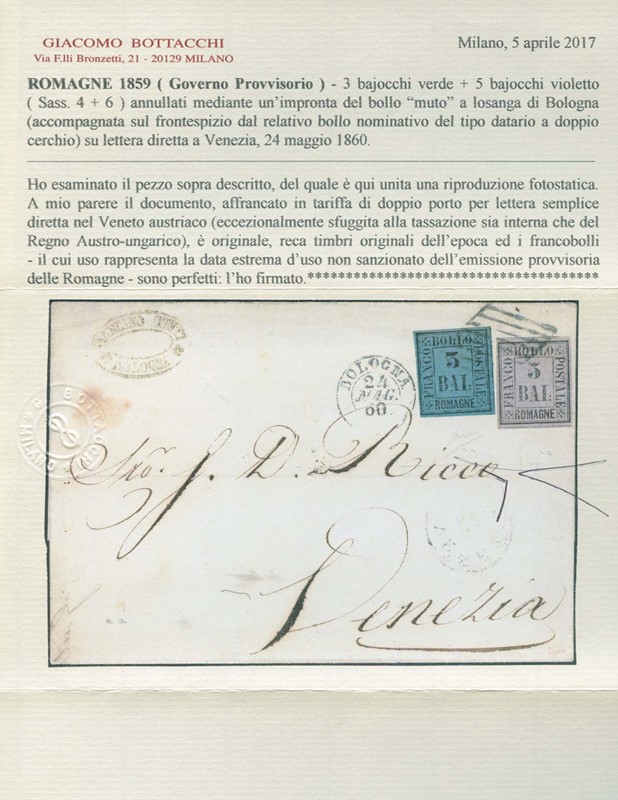 GIACOMO BOTTACCHI
Milano, 5 aprile 2017
Via F.lli Bronzetti, 21 - 20129 MILANO
ROMAGNE 1859 ( Governo Provvisorio ) - 3 bajocchi verde + 5 bajocchi violetto
( Sass. 4 + 6 ) annullati mediante un’impronta del bollo “muto” a losanga di Bologna
(accompagnata sul frontespizio dal relativo bollo nominativo del tipo datario a doppio
cerchio) su lettera diretta a Venezia, 24 maggio 1860.
Ho esaminato il pezzo sopra descritto, del quale è qui unita una riproduzione fotostatica.
A mio parere il documento, affrancato in tariffa di doppio porto per lettera semplice
diretta nel Veneto austriaco (eccezionalmente sfuggita alla tassazione sia interna che del
Regno Austro-ungarico), è originale, reca timbri originali dell’epoca ed i francobolli
- il cui uso rappresenta la data estrema d’uso non sanzionato dell’emissione provvisoria
delle Romagne - sono perfetti: l’ho firmato.************************************
BOLLO
FRANCO
3
BAI.
POSTALE
ROMAGNE
BOLLO
FRANCO
BAI.
POSTALE
ROMAGNE
BOLOGNA
24
MAG.
60
BOLOGNA
G. BOTTACCHI
MILANO
J. D. Ricco
Venezia